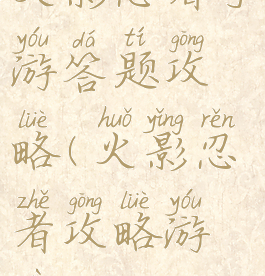 yóu dá tí gōng
游答题攻
lüè huǒ yǐng rěn
略(火影忍
zhě gōng lüè yóu
者攻略游